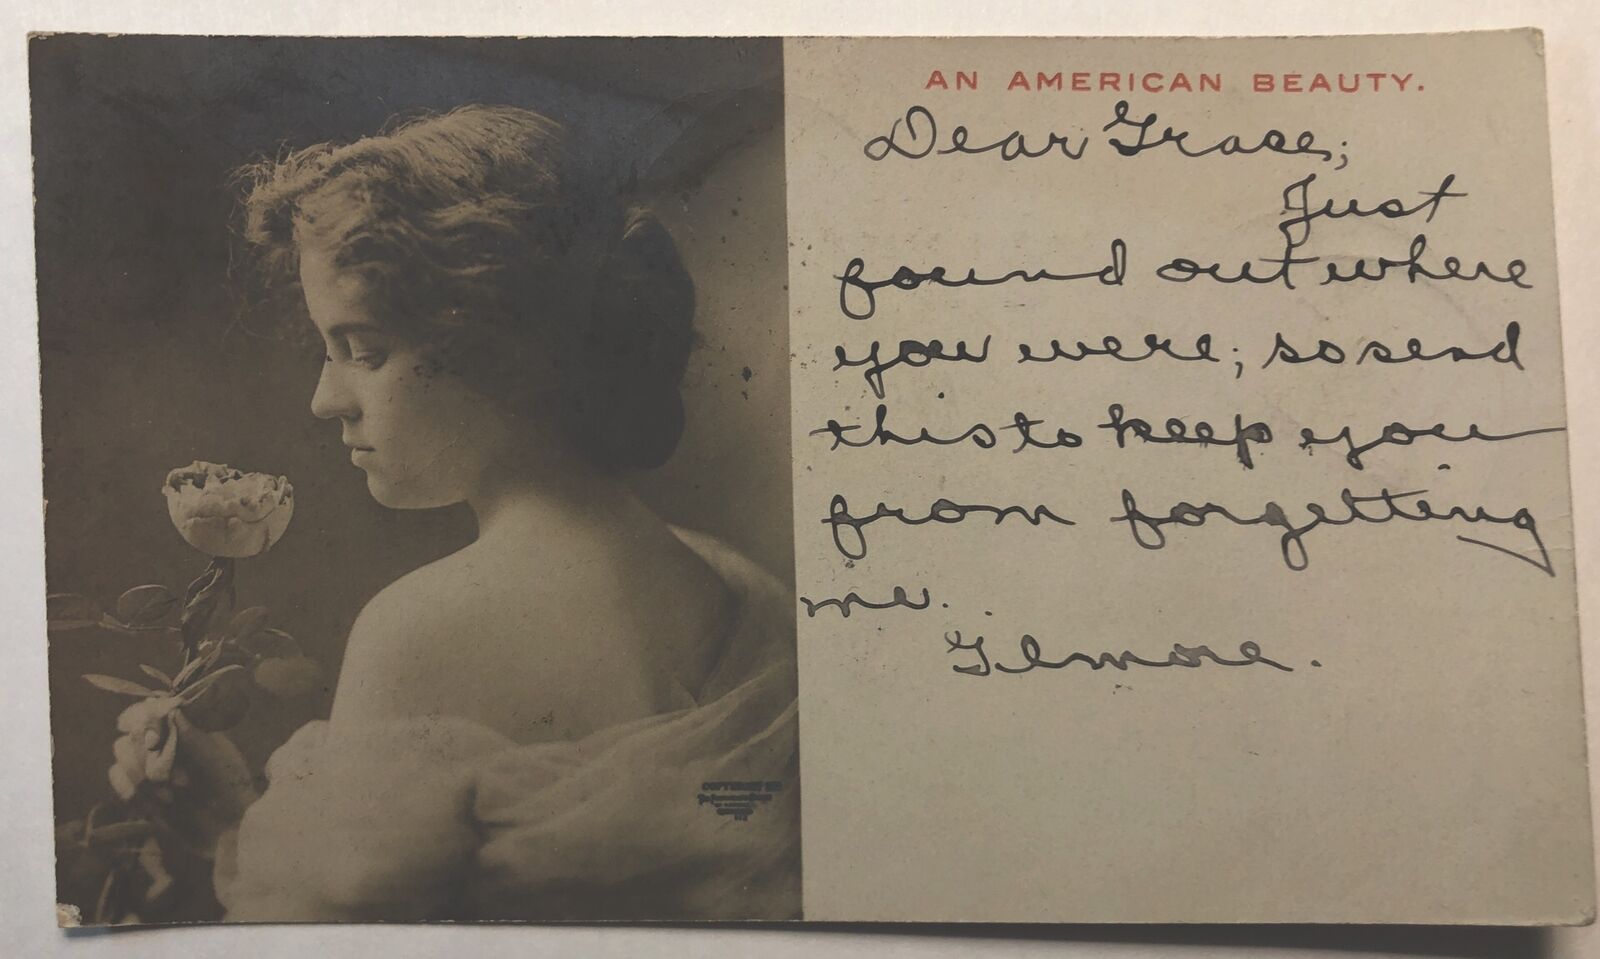 AN AMERICAN BEAUTY.
Dear Grace;
Just
found out where
you were; so send
this to keep you
from forgetting
me.
Gilmore.
COPYRIGHT